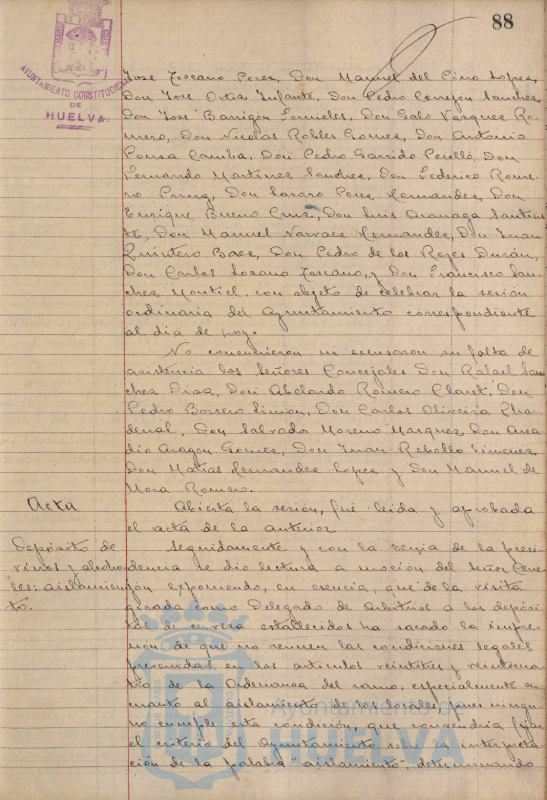 88
AYUNTAMIENTO CONSTITUCIONAL
DE
HUELVA.
José Toscano Perez, Don Manuel del Pino Lopez,
Don José Ortiz Infante, Don Pedro Cerrejón Sanchez,
Don José Barrigón Fornieles, Don Galo Vazquez Ro-
mero, Don Nicolas Robles Gomez, Don Antonio
Ponza Camba, Don Pedro Garrido Perelló, Don
Fernando Martinez Sanchez, Don Federico Rome-
ro Don Lazaro Perez Hernandez, Don
Enrique Bueno Cruz, Don Luis
Don Manuel Narvaez Hernandez, Don Juan
Quintero Baez, Don Pedro de los Reyes Durán,
Don Carlos Lozano Toscano, y Don Francisco San-
chez Montiel, con objeto de celebrar la sesión
ordinaria del Ayuntamiento correspondiente
al dia de hoy.
No concurrieron ni excusaron su falta de
asistencia los Señores Concejales Don Rafael San-
chez Diaz, Don Abelardo Romero Claret, Don
Pedro Borrero Limon, Don Carlos Oliveira Cha-
denal, Don Salvador Moreno Marquez, Don Arca-
dio Aragon Gomez, Don Juan Rebollo Jimenez,
Don Matias Hernandez Lopez y Don Manuel de
Mora Romero.
Acta
Abierta la sesión, fué leida y aprobada
el acta de la anterior.
Depósito de
vinos y alcoho-
les: aislamien-
to.
Seguidamente y con la venia de la presi-
dencia se dio lectura a moción del Señor
exponiendo, en esencia, que de la visita
girada como Delegado de Arbitrios a los depósi-
tos de establecidos ha sacado la impre-
sion de que no reunen las condiciones legales
prevenidas en los articulos veintitres y veinticua-
tro de la Ordenanza del ramo, especialmente en
cuanto al aislamiento de los locales, pues ningu-
no cumple esta condición, que convendria fijar
el criterio del Ayuntamiento sobre la interpreta-
ción de la palabra "aislamiento", determinando
Ayuntamiento de
HUELVA